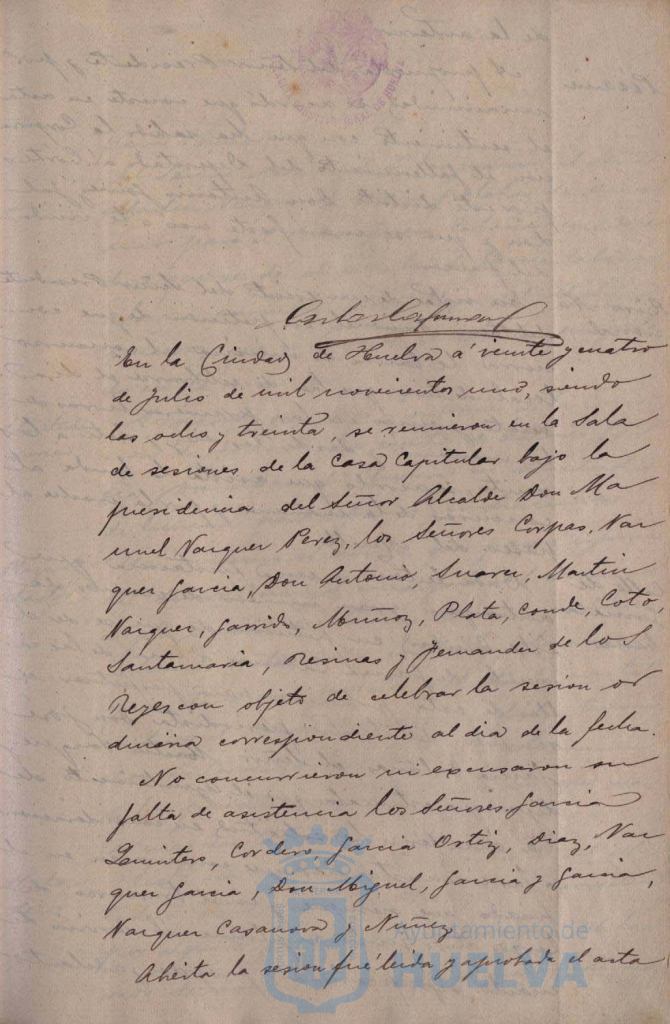 En la Ciudad de Huelva á veinte y cuatro
de Julio de mil novecientos uno, siendo
las ocho y treinta, se reunieron en la Sala
de sesiones de la Casa Capitular bajo la
presidencia del Señor Alcalde Don Ma
nuel Vazquez Perez, los Señores Corpas, Vaz
quez Garcia, Don Antonio, Suarez, Martin
Vazquez, Garrido, Muñoz, Plata, Conde, Coto,
Santamaria, Resinas y Fernandez de los
Reyes con objeto de celebrar la sesion or
dinaria correspondiente al dia de la fecha.
No concurrieron ni excusaron su
falta de asistencia los Señores Garcia
Quintero, Cordero, Garcia Ortiz, Diaz, Vaz
quez Garcia, Don Miguel, Garcia y Garcia,
Vazquez Casanova y Nuñez
Abierta la sesion fué leida y aprobada el acta
Ayuntamiento de
HUELVA